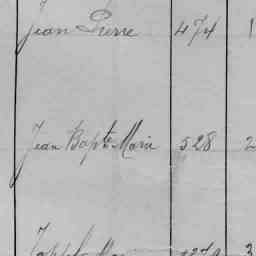 Jean Pierre 474 1
Jean Bapte Marie 528 2
3